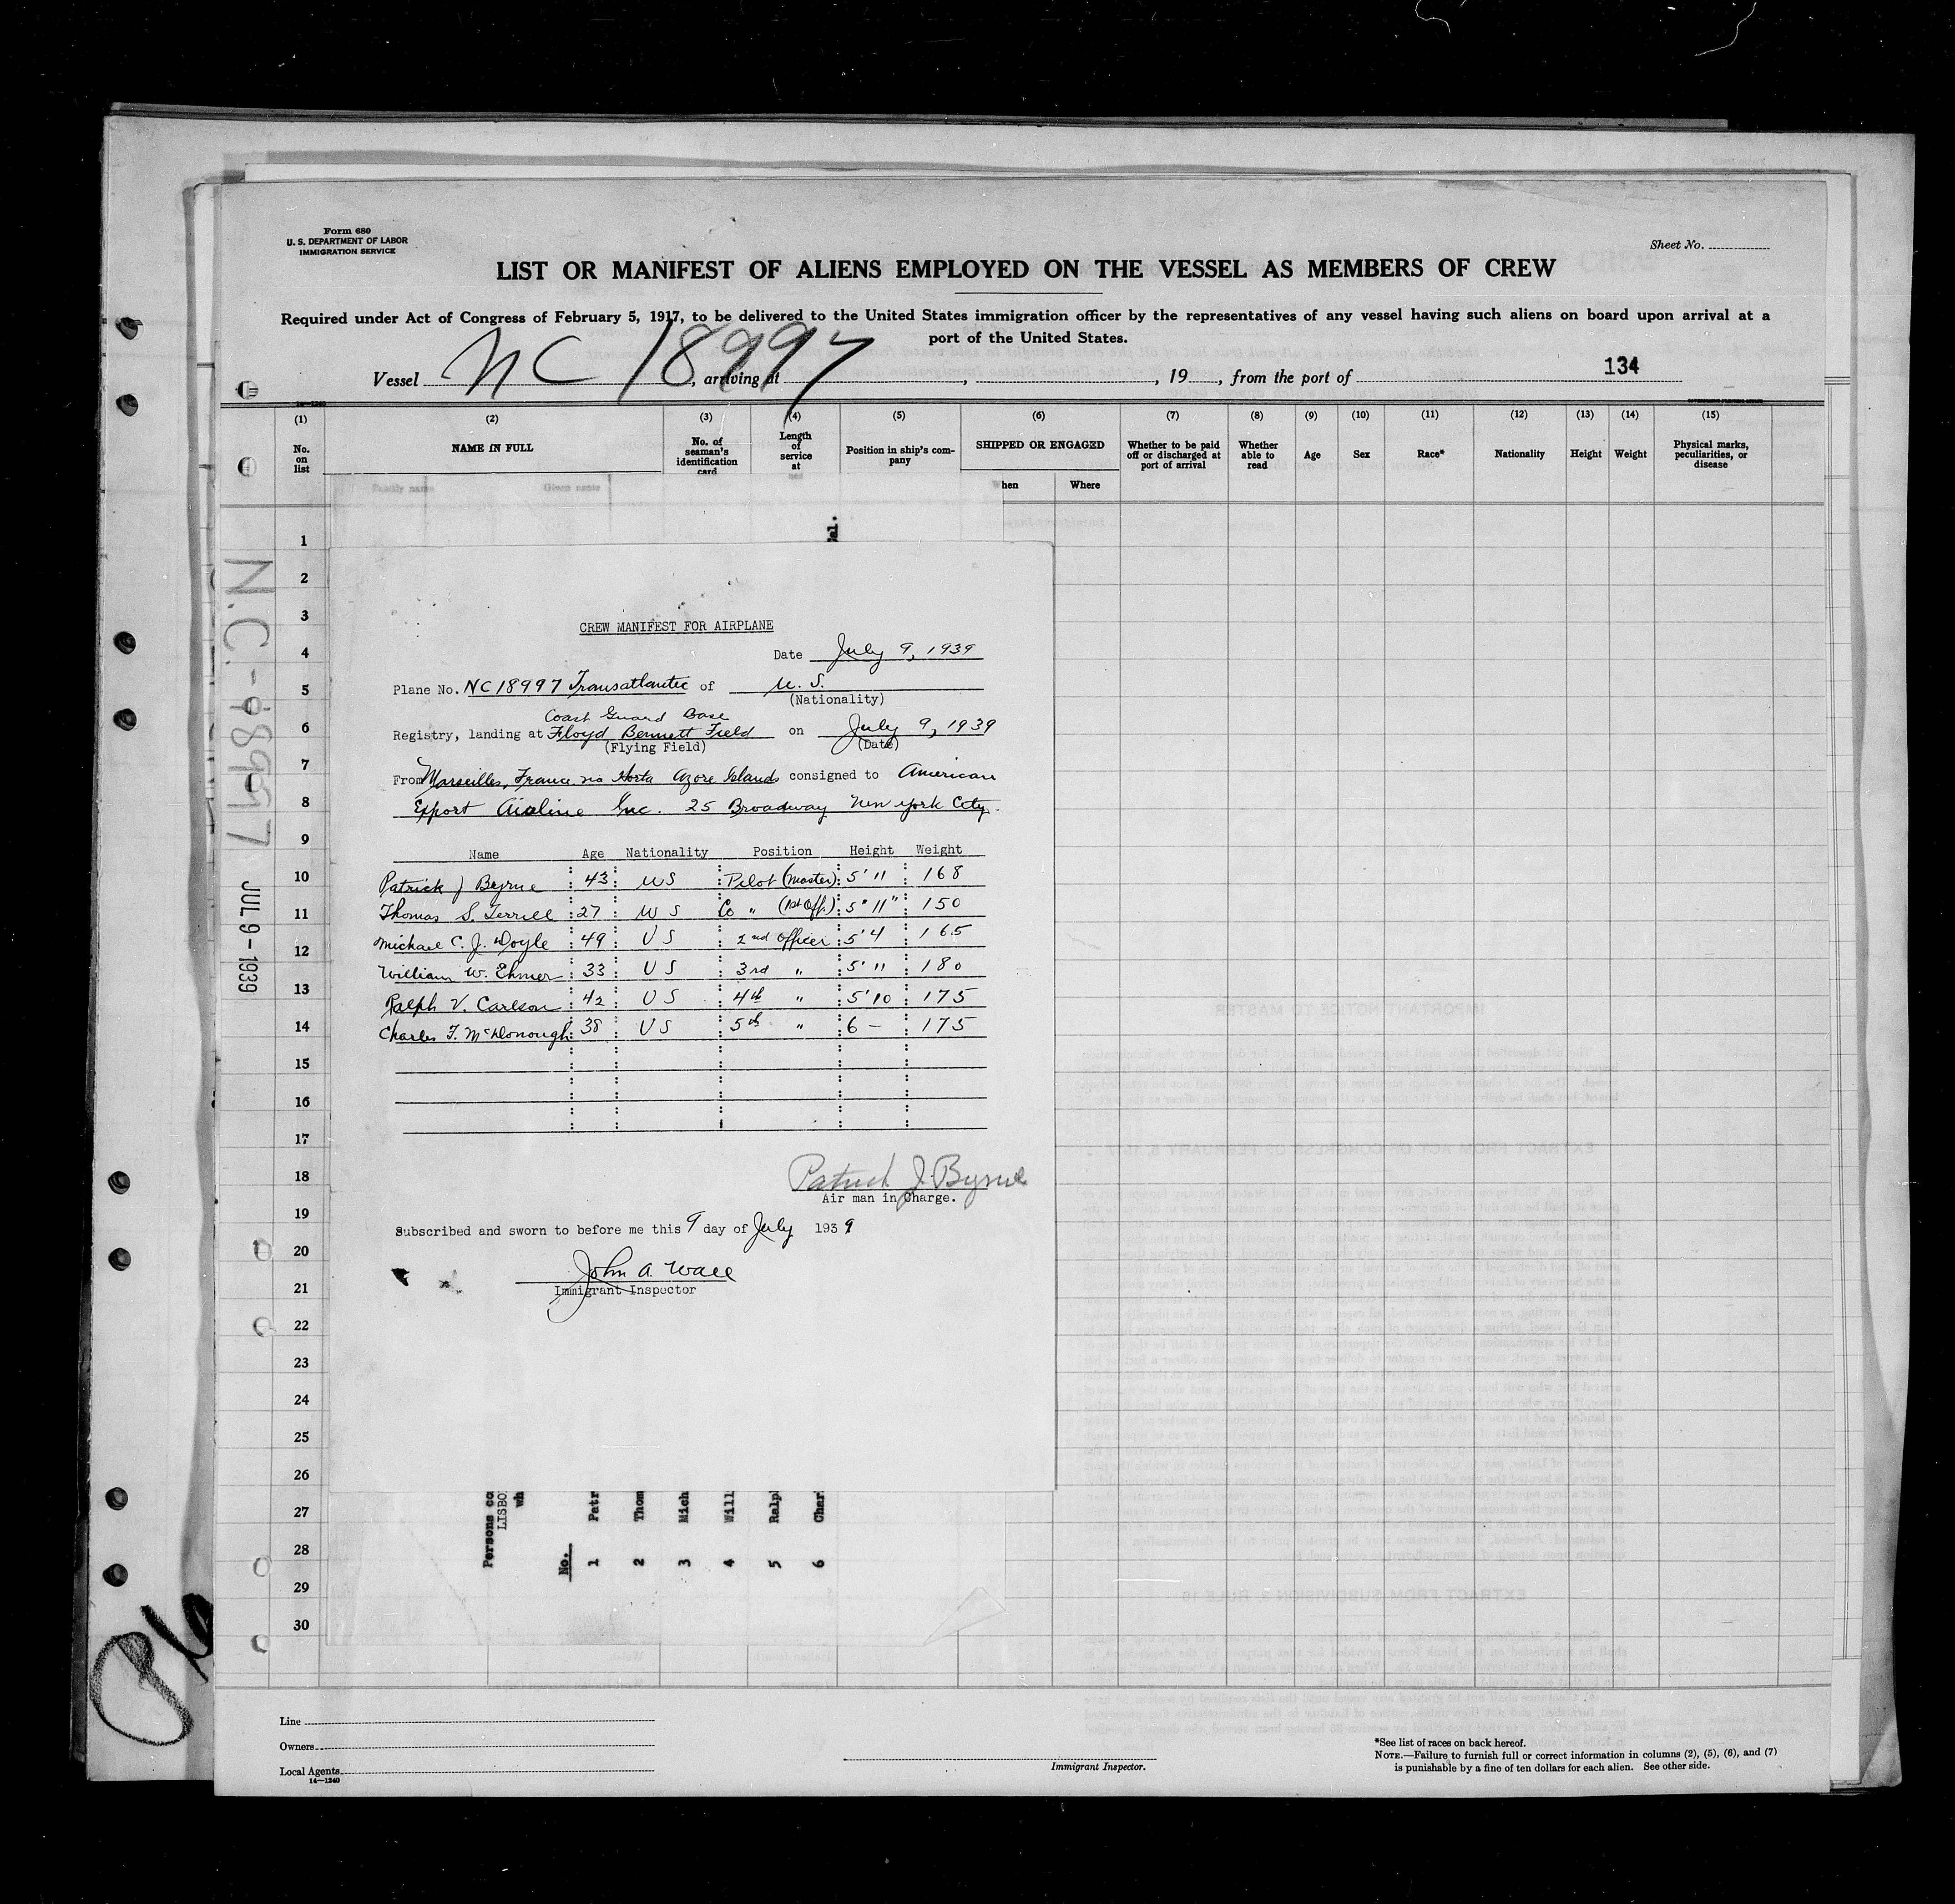 Form 680
U. S. DEPARTMENT OF LABOR
IMMIGRATION SERVICE
Sheet No.
LIST OR MANIFEST OF ALIENS EMPLOYED ON THE VESSEL AS MEMBERS OF CREW
Required under Act of Congress of February 5, 1917, to be delivered to the United States immigration officer by the representatives of any vessel having such aliens on board upon arrival at a
port of the United States.
Vessel NC 18997, arriving at , , 19 , from the port of 134
14—1240
(1) (2) (3) (4) (5) (6) (7) (8) (9) (10) (11) (12) (13) (14) (15)
No. on list
NAME IN FULL
No. of seaman's identification card
Length of service at
Position in ship's company
SHIPPED OR ENGAGED
Whether to be paid off or discharged at port of arrival
Whether able to read
Age
Sex
Race*
Nationality
Height
Weight
Physical marks, peculiarities, or disease
Family name Given name
hen Where
N.C.-18997
JUL 9-1939
1
2
3
4
5
6
7
8
9
10
11
12
13
14
15
16
17
18
19
20
21
22
23
24
25
26
27
28
29
30
CREW MANIFEST FOR AIRPLANE
Date July 9, 1939
Plane No. NC18997 Transatlantic of U. S.
(Nationality)
Coast Guard Base
Registry, landing at Floyd Bennett Field on July 9, 1939
(Flying Field) (Date)
From Marseilles, France via Horta Azore Islands consigned to American
Export Airline Inc. 25 Broadway New York City.
Name Age Nationality Position Height Weight
Patrick J Byrne 43 US Pilot (Master) 5' 11 168
Thomas S. Terrill 27 US Co " (1st Off.) 5" 11" 150
Michael C. J. Doyle 49 US 2nd Officer 5'4 165
William W. Ehmer 33 US 3rd " 5' 11 180
Ralph V. Carlson 42 US 4th " 5'10 175
Charles F. McDonough 38 US 5th " 6 - 175
Patrick J. Byrne
Air man in Charge.
Subscribed and sworn to before me this 9 day of July 1939
John A. Wall
Immigrant Inspector
Persons co
LISBO
wh
No.
1 Patr
2 Thom
3 Mich
4 Will
5 Ralp
6 Char
Line
Owners
Local Agents
14—1240
Immigrant Inspector.
*See list of races on back hereof.
NOTE.—Failure to furnish full or correct information in columns (2), (5), (6), and (7)
is punishable by a fine of ten dollars for each alien. See other side.